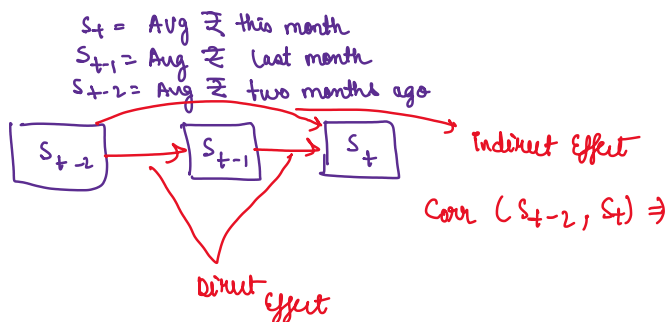 St = AVG ₹ this month
St-1 = Avg ₹ last month
St-2 = Avg ₹ two months ago
St-2 St-1 St
Indirect Effect
Corr (St-2, St) ⇒
Direct
Effect